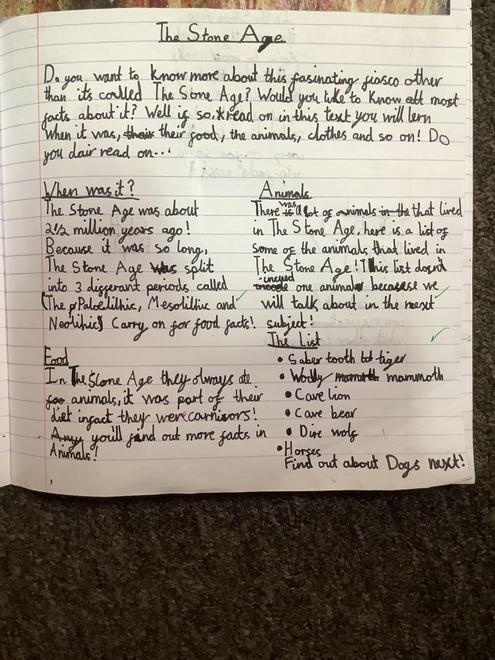 The Stone Age
Do you want to know more about this fasinating fiasco other
than it's coulled The Stone Age? Would you like to know att most
facts about it? Well if so, read on in this text you will lern
when it was, their their food, the animals, clothes and so on! Do
you dair read on...
When was it?
The Stone Age was about
2½ million years ago!
Because it was so long,
The Stone Age was split
into 3 differant periods called
(The Paloelithic, Mesolithic and
Neolithic) Carry on for food facts!
Food
In The Stone Age they always ate
foo animals, it was part of their
diet infact they were carnivors!
Any you'll find out more facts in
Animals!
Animals
There was a lot of animals in the that lived
in The Stone Age, here is a list of
some of the animals that lived in
The Stone Age! This list doesn't
incued one animal because we
will talk about in the next
subject!
The List
• Saber tooth td tiger
• Woolly mamoth mammoth
• Cave lion
• Cave bear
• Dire wolf
• Horses
Find out about Dogs next!